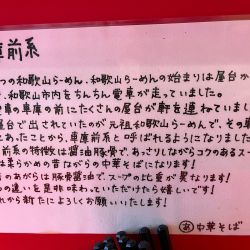 庫前系
つの和歌山らーめん、和歌山らーめんの始まりは屋台か
、和歌山市内をちんちん電車が走っていました。
車の車庫の前にたくさんの屋台が軒を連ねていまし
屋台で出されていたのが元祖和歌山らーめんで、その車
とあったことから、車庫前系と呼ばれるようになりました
前系の特徴は醤油豚骨で、あっさりしながらコクのあるスー
は柔らかめの昔ながらの中華そばになります!
のあがらは豚骨醤油で、スープの比重が異なります!
の違いを是非味わっていただけたら嬉しいです!
れから新たによろしくお願いいたします!
あ 中華そば